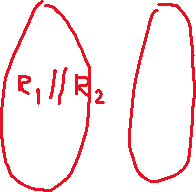 R₁ // R₂